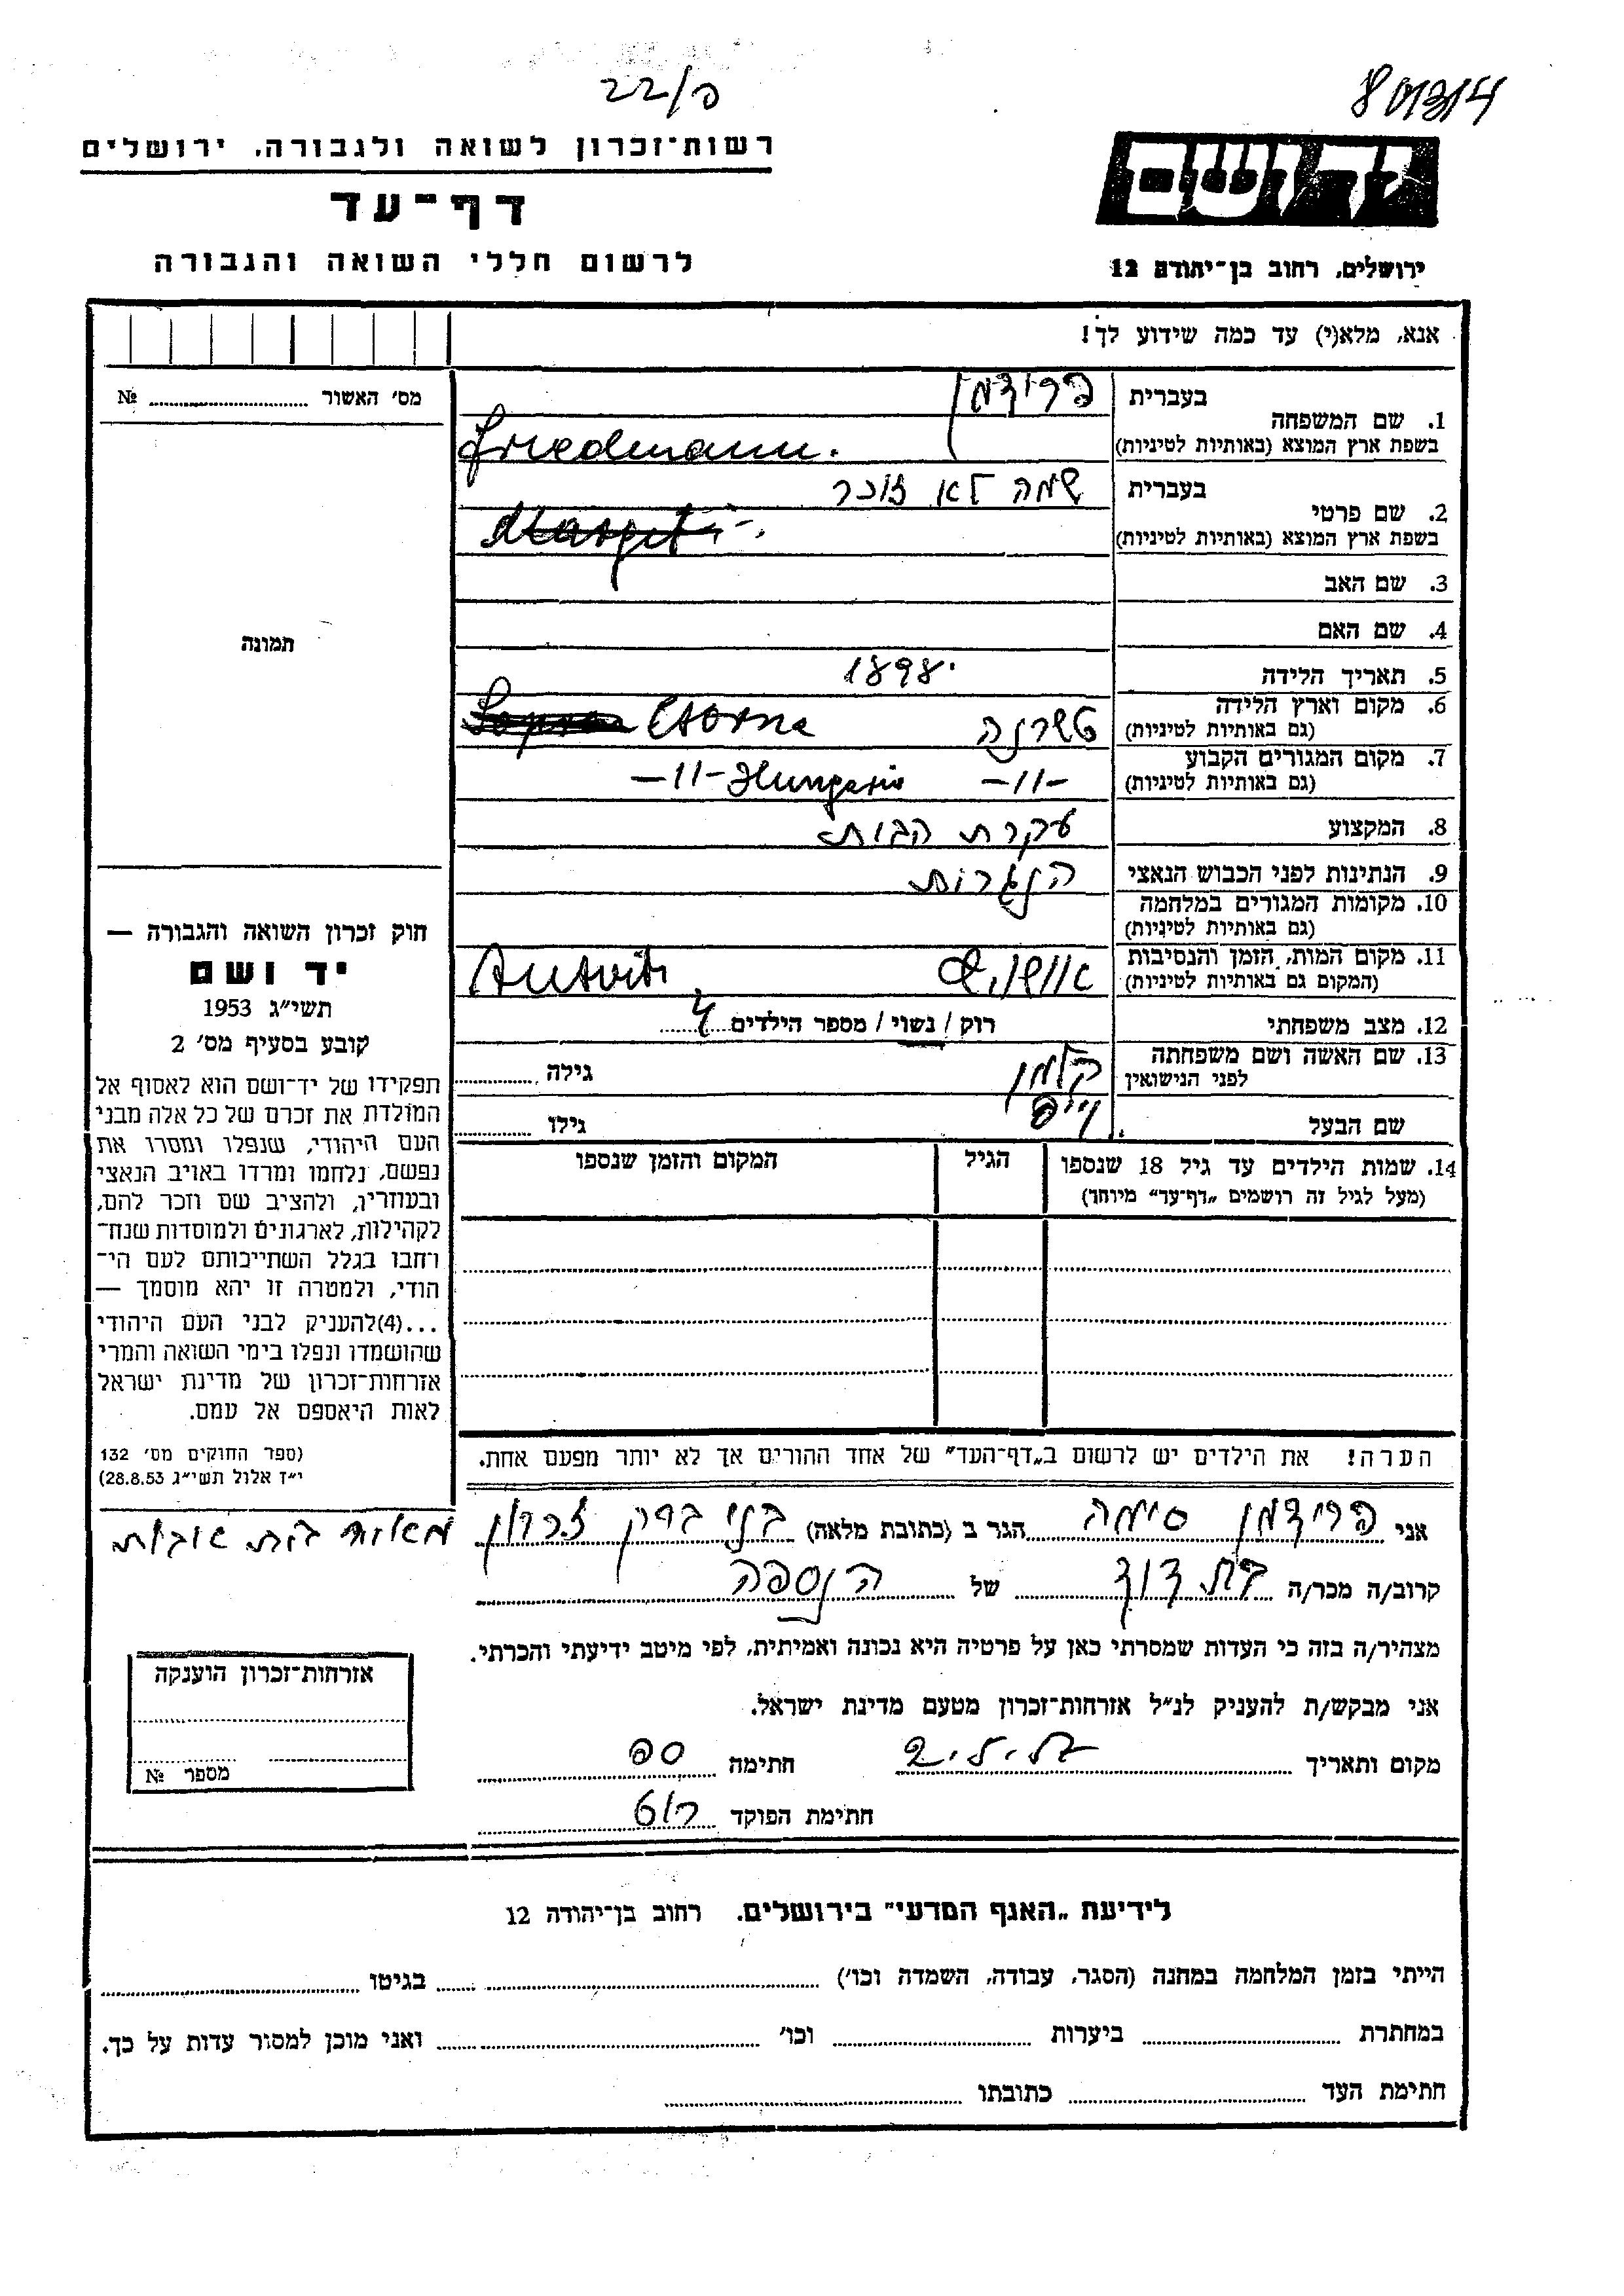 פ/22
80/314
רשות־זכרון לשואה ולגבורה, ירושלים
דף־עד
לרשום חללי השואה והגבורה
יד ושם
ירושלים, רחוב בן־יהודה 12
אנא, מלא(י) עד כמה שידוע לך!
מס׳ האשור № 
1. שם המשפחה בעברית פרידמן
בשפת ארץ המוצא (באותיות לטיניות) Friedmann.
2. שם פרטי בעברית שמה לא זוכר
בשפת ארץ המוצא (באותיות לטיניות)
3. שם האב
4. שם האם
5. תאריך הלידה 1898
6. מקום וארץ הלידה
(גם באותיות לטיניות) Csorna
7. מקום המגורים הקבוע
(גם באותיות לטיניות) -11- -11- Hungaria
8. המקצוע עקרת הבית
9. הנתינות לפני הכבוש הנאצי הונגרית
10. מקומות המגורים במלחמה
(גם באותיות לטיניות)
11. מקום המות, הזמן והנסיבות
(המקום גם באותיות לטיניות) אושויץ
12. מצב משפחתי רוק / נשוי / מספר הילדים 4
13. שם האשה ושם משפחתה
לפני הנישואין גילה
שם הבעל קלמן גילו
14. שמות הילדים עד גיל 18 שנספו
(מעל לגיל זה רושמים „דף־עד״ מיוחד)
הגיל
המקום והזמן שנספו
תמונה
חוק זכרון השואה והגבורה —
יד ושם
תשי״ג 1953
קובע בסעיף מס׳ 2
תפקידו של יד־ושם הוא לאסוף אל
המולדת את זכרם של כל אלה מבני
העם היהודי, שנפלו ומסרו את
נפשם, נלחמו ומרדו באויב הנאצי
ובעוזריו, ולהציב שם וזכר להם,
לקהילות, לארגונים ולמוסדות שנח־
רחבו בגלל השתייכותם לעם הי־
הודי, ולמטרה זו יהא מוסמך —
...(4)להעניק לבני העם היהודי
שהושמדו ונפלו בימי השואה והמרי
אזרחות־זכרון של מדינת ישראל
לאות היאספם אל עמם.
(ספר החוקים מס׳ 132
י״ז אלול תשי״ג 28.8.53)
הערה! את הילדים יש לרשום ב„דף־העד״ של אחד ההורים אך לא יותר מפעם אחת.
אני פרידמן סימה הגר ב (כתובת מלאה) בני ברק זכרון מאיר בית אבות
קרוב/ה מכר/ה בת דוד של הנספה
מצהיר/ה בזה כי העדות שמסרתי כאן על פרטיה היא נכונה ואמיתית, לפי מיטב ידיעתי והכרתי.
אני מבקש/ת להעניק לנ״ל אזרחות־זכרון מטעם מדינת ישראל.
מקום ותאריך חתימה
חתימת הפוקד
אזרחות־זכרון הוענקה
מספר №
לידיעת „האגף המדעי״ בירושלים. רחוב בן־יהודה 12
הייתי בזמן המלחמה במחנה (הסגר, עבודה, השמדה וכו׳) בגיטו
במחתרת ביערות וכו׳ ואני מוכן למסור עדות על כך.
חתימת העד כתובתו